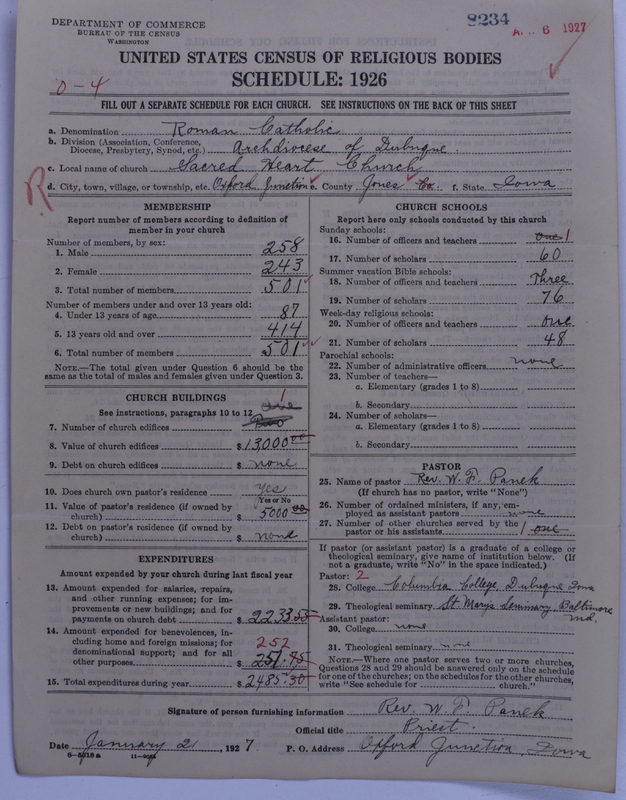 DEPARTMENT OF COMMERCE
BUREAU OF THE CENSUS
WASHINGTON
8234
6 1927
UNITED STATES CENSUS OF RELIGIOUS BODIES
SCHEDULE: 1926
0-4
FILL OUT A SEPARATE SCHEDULE FOR EACH CHURCH. SEE INSTRUCTIONS ON THE BACK OF THIS SHEET
a. Denomination Roman Catholic
b. Division (Association, Conference, Diocese, Presbytery, Synod, etc.) Archdiocese of Dubuque.
c. Local name of church Sacred Heart Church
R
d. City, town, village, or township, etc. Oxford Junction e. County Jones Co. f. State Iowa
MEMBERSHIP
Report number of members according to definition of
member in your church
Number of members, by sex:
1. Male 258
2. Female 243
3. Total number of members 501
Number of members under and over 13 years old:
4. Under 13 years of age 87
5. 13 years old and over 414
6. Total number of members 501
NOTE.—The total given under Question 6 should be the
same as the total of males and females given under Question 3.
CHURCH BUILDINGS
See instructions, paragraphs 10 to 12 one 1
7. Number of church edifices Two
8. Value of church edifices $ 13,000 00
9. Debt on church edifices $ none
10. Does church own pastor's residence Yes
Yes or No
11. Value of pastor's residence (if owned by
church) $ 5000 00
12. Debt on pastor's residence (if owned by
church) $ none
EXPENDITURES
Amount expended by your church during last fiscal year
13. Amount expended for salaries, repairs,
and other running expenses; for im-
provements or new buildings; and for
payments on church debt $ 2233 55
14. Amount expended for benevolences, in-
cluding home and foreign missions; for 252
denominational support; and for all
other purposes $ 251.75
15. Total expenditures during year $ 2485.30
CHURCH SCHOOLS
Report here only schools conducted by this church
Sunday schools:
16. Number of officers and teachers one 1
17. Number of scholars 60
Summer vacation Bible schools:
18. Number of officers and teachers Three
19. Number of scholars 76
Week-day religious schools:
20. Number of officers and teachers one
21. Number of scholars 48
Parochial schools:
22. Number of administrative officers none
23. Number of teachers—
a. Elementary (grades 1 to 8)
b. Secondary
24. Number of scholars—
a. Elementary (grades 1 to 8)
b. Secondary
PASTOR
25. Name of pastor Rev. W. F. Panek
(If church has no pastor, write "None")
26. Number of ordained ministers, if any, em-
ployed as assistant pastors none
27. Number of other churches served by the
pastor or his assistants 1 one
If pastor (or assistant pastor) is a graduate of a college or
theological seminary, give name of institution below. (If
not a graduate, write "No" in the space indicated.)
Pastor: 2
28. College Columbia College, Dubuque Iowa
29. Theological seminary St. Marys Seminary Baltimore
Md.
Assistant pastor:
30. College none
31. Theological seminary none
NOTE.—Where one pastor serves two or more churches,
Questions 28 and 29 should be answered only on the schedule
for one of the churches; on the schedules for the other churches,
write "See schedule for church."
Signature of person furnishing information Rev. W. F. Panek
Official title Priest.
Date January 2, 1927. P. O. Address Oxford Junction, Iowa